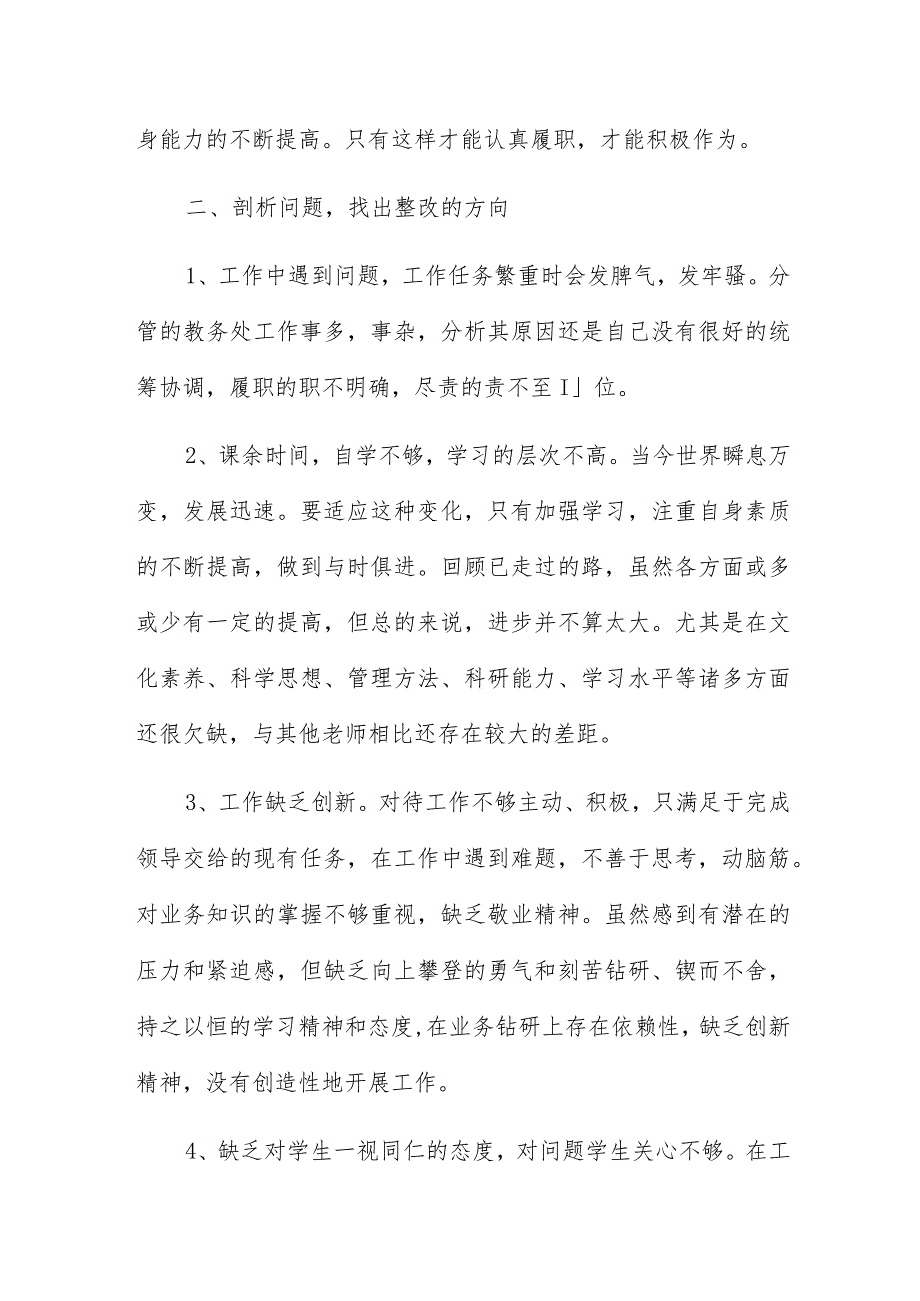 身能力的不断提高。只有这样才能认真履职，才能积极作为。
二、剖析问题，找出整改的方向
1、工作中遇到问题，工作任务繁重时会发脾气，发牢骚。分
管的教务处工作事多，事杂，分析其原因还是自己没有很好的统
筹协调，履职的职不明确，尽责的责不至 I」位。
2、课余时间，自学不够，学习的层次不高。当今世界瞬息万
变，发展迅速。要适应这种变化，只有加强学习，注重自身素质
的不断提高，做到与时俱进。回顾已走过的路，虽然各方面或多
或少有一定的提高，但总的来说，进步并不算太大。尤其是在文
化素养、科学思想、管理方法、科研能力、学习水平等诸多方面
还很欠缺，与其他老师相比还存在较大的差距。
3、工作缺乏创新。对待工作不够主动、积极，只满足于完成
领导交给的现有任务，在工作中遇到难题，不善于思考，动脑筋。
对业务知识的掌握不够重视，缺乏敬业精神。虽然感到有潜在的
压力和紧迫感，但缺乏向上攀登的勇气和刻苦钻研、锲而不舍，
持之以恒的学习精神和态度,在业务钻研上存在依赖性，缺乏创新
精神，没有创造性地开展工作。
4、缺乏对学生一视同仁的态度，对问题学生关心不够。在工